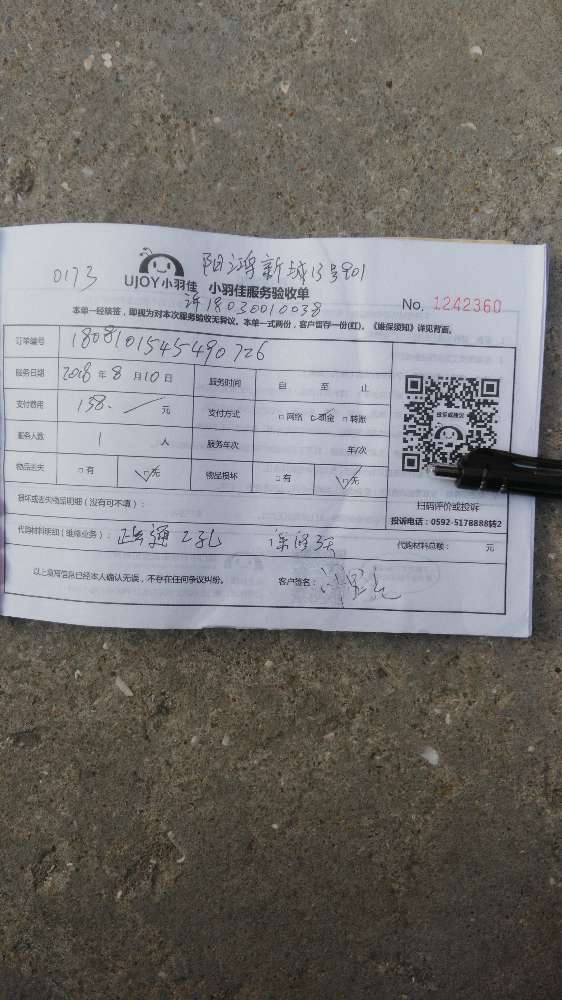 0173
阳鸿新城13号901
UJOY小羽佳 小羽佳服务验收单
许18030010038
No. 1242360
本单一经核签，即视为对本次服务验收无异议。本单一式两份，客户留存一份(红)。《维保须知》详见背面。
订单编号 1808101545490726
服务日期 2018年8月10日 服务时间 自 至 止
支付费用 138.- 元 支付方式 □网络 ☑现金 □转账
服务人数 1 人 服务年次 年/次
物品丢失 □有 ☑无 物品损坏 □有 ☑无
损坏或丢失物品明细（没有可不填）：
扫码评价或投诉
投诉电话：0592-5178888转2
代购材料明细（维修业务）： 疏通2孔 保修3天 代购材料总额： 元
以上填写信息已经本人确认无误，不存在任何争议纠纷。 客户签名：